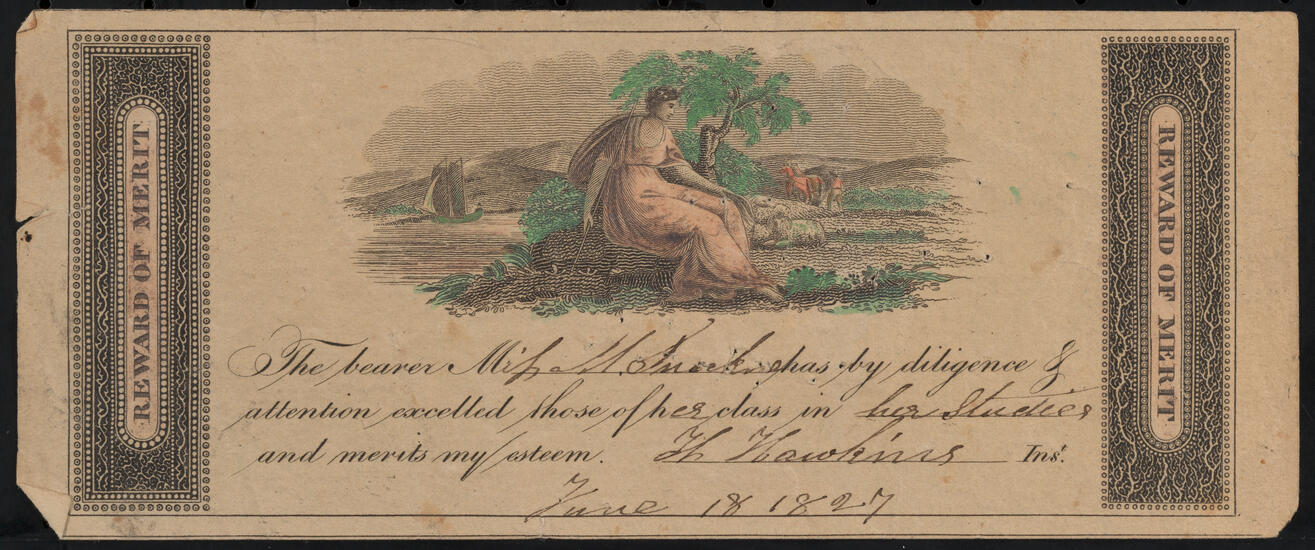 REWARD OF MERIT
The bearer Miss M. has by diligence &
attention excelled those of her class in her Studies
and merits my esteem. H Hawkins Inst.
June 18 1827
REWARD OF MERIT